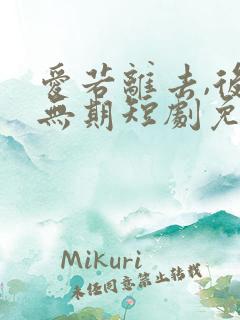 愛若離去,後
無期短劇免
Mikuri
未经同意禁止转载